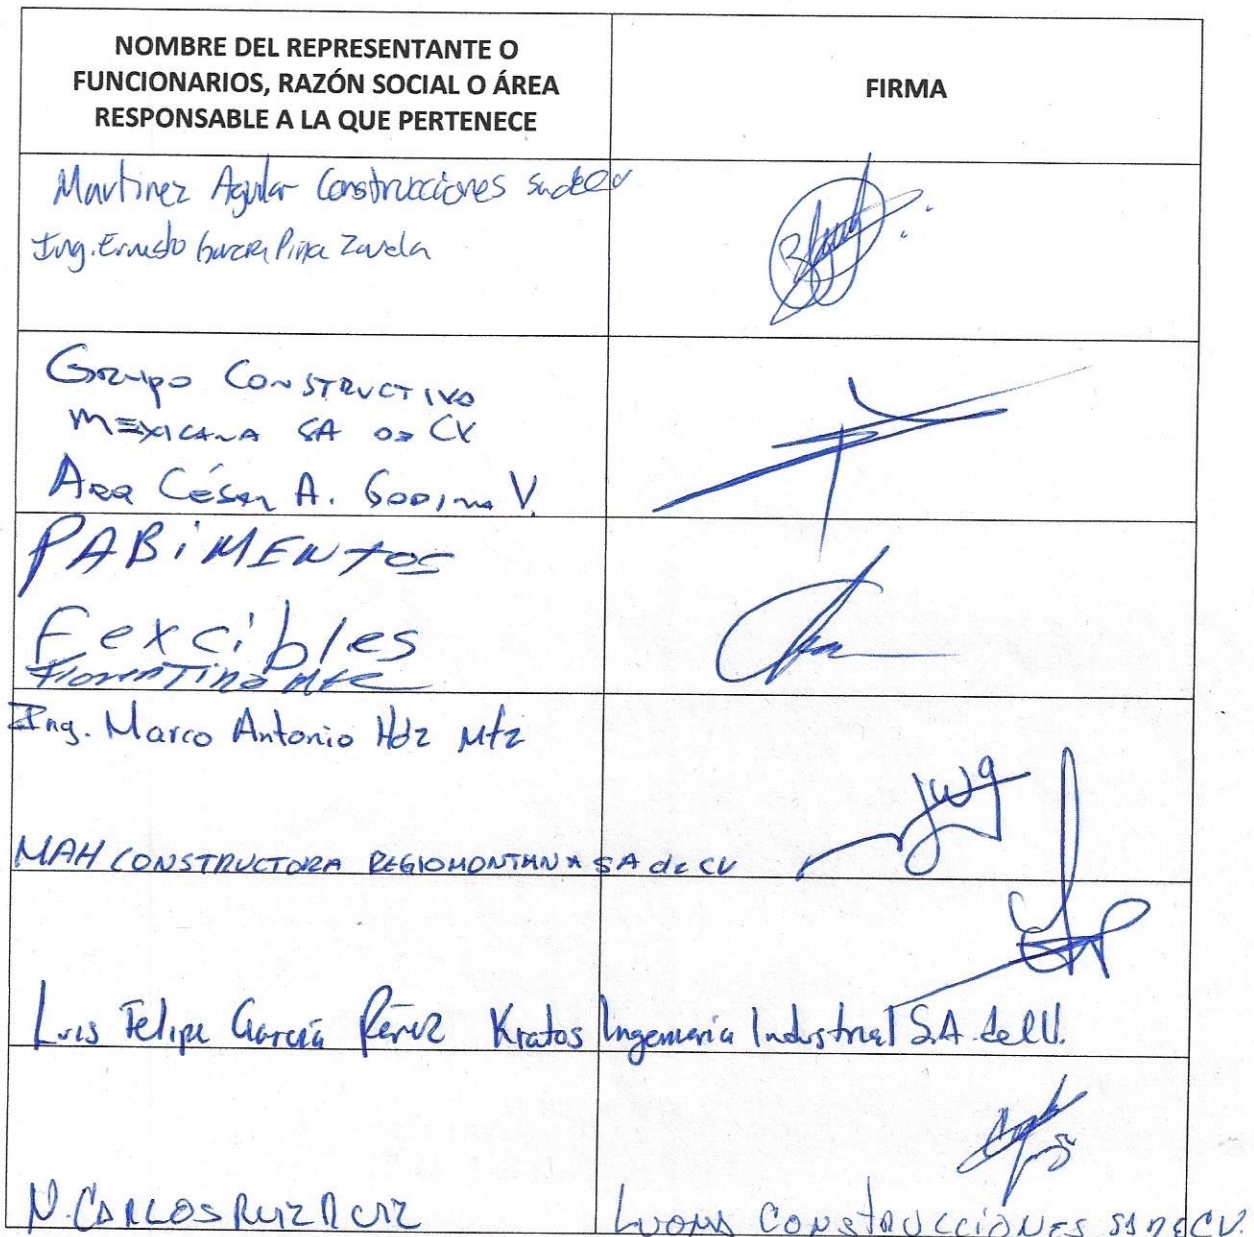 NOMBRE DEL REPRESENTANTE O
FUNCIONARIOS, RAZÓN SOCIAL O ÁREA
RESPONSABLE A LA QUE PERTENECE
FIRMA
Martinez Aguilar Construcciones
Ing. Ernesto Garcia Piña
Grupo Constructivo
Mexicana SA de CV
Arq César A. Godina V.
PABiMENTOS
Fexcibles
Florentino Mtz
Ing. Marco Antonio Hdz Mtz
MAH CONSTRUCTORA REGIOMONTANA SA de CV
Luis Felipe García Pérez Kratos Ingenieria Industrial S.A. de C.V.
N. CARLOS RUIZ RUIZ CONSTRUCCIONES SA DE CV.